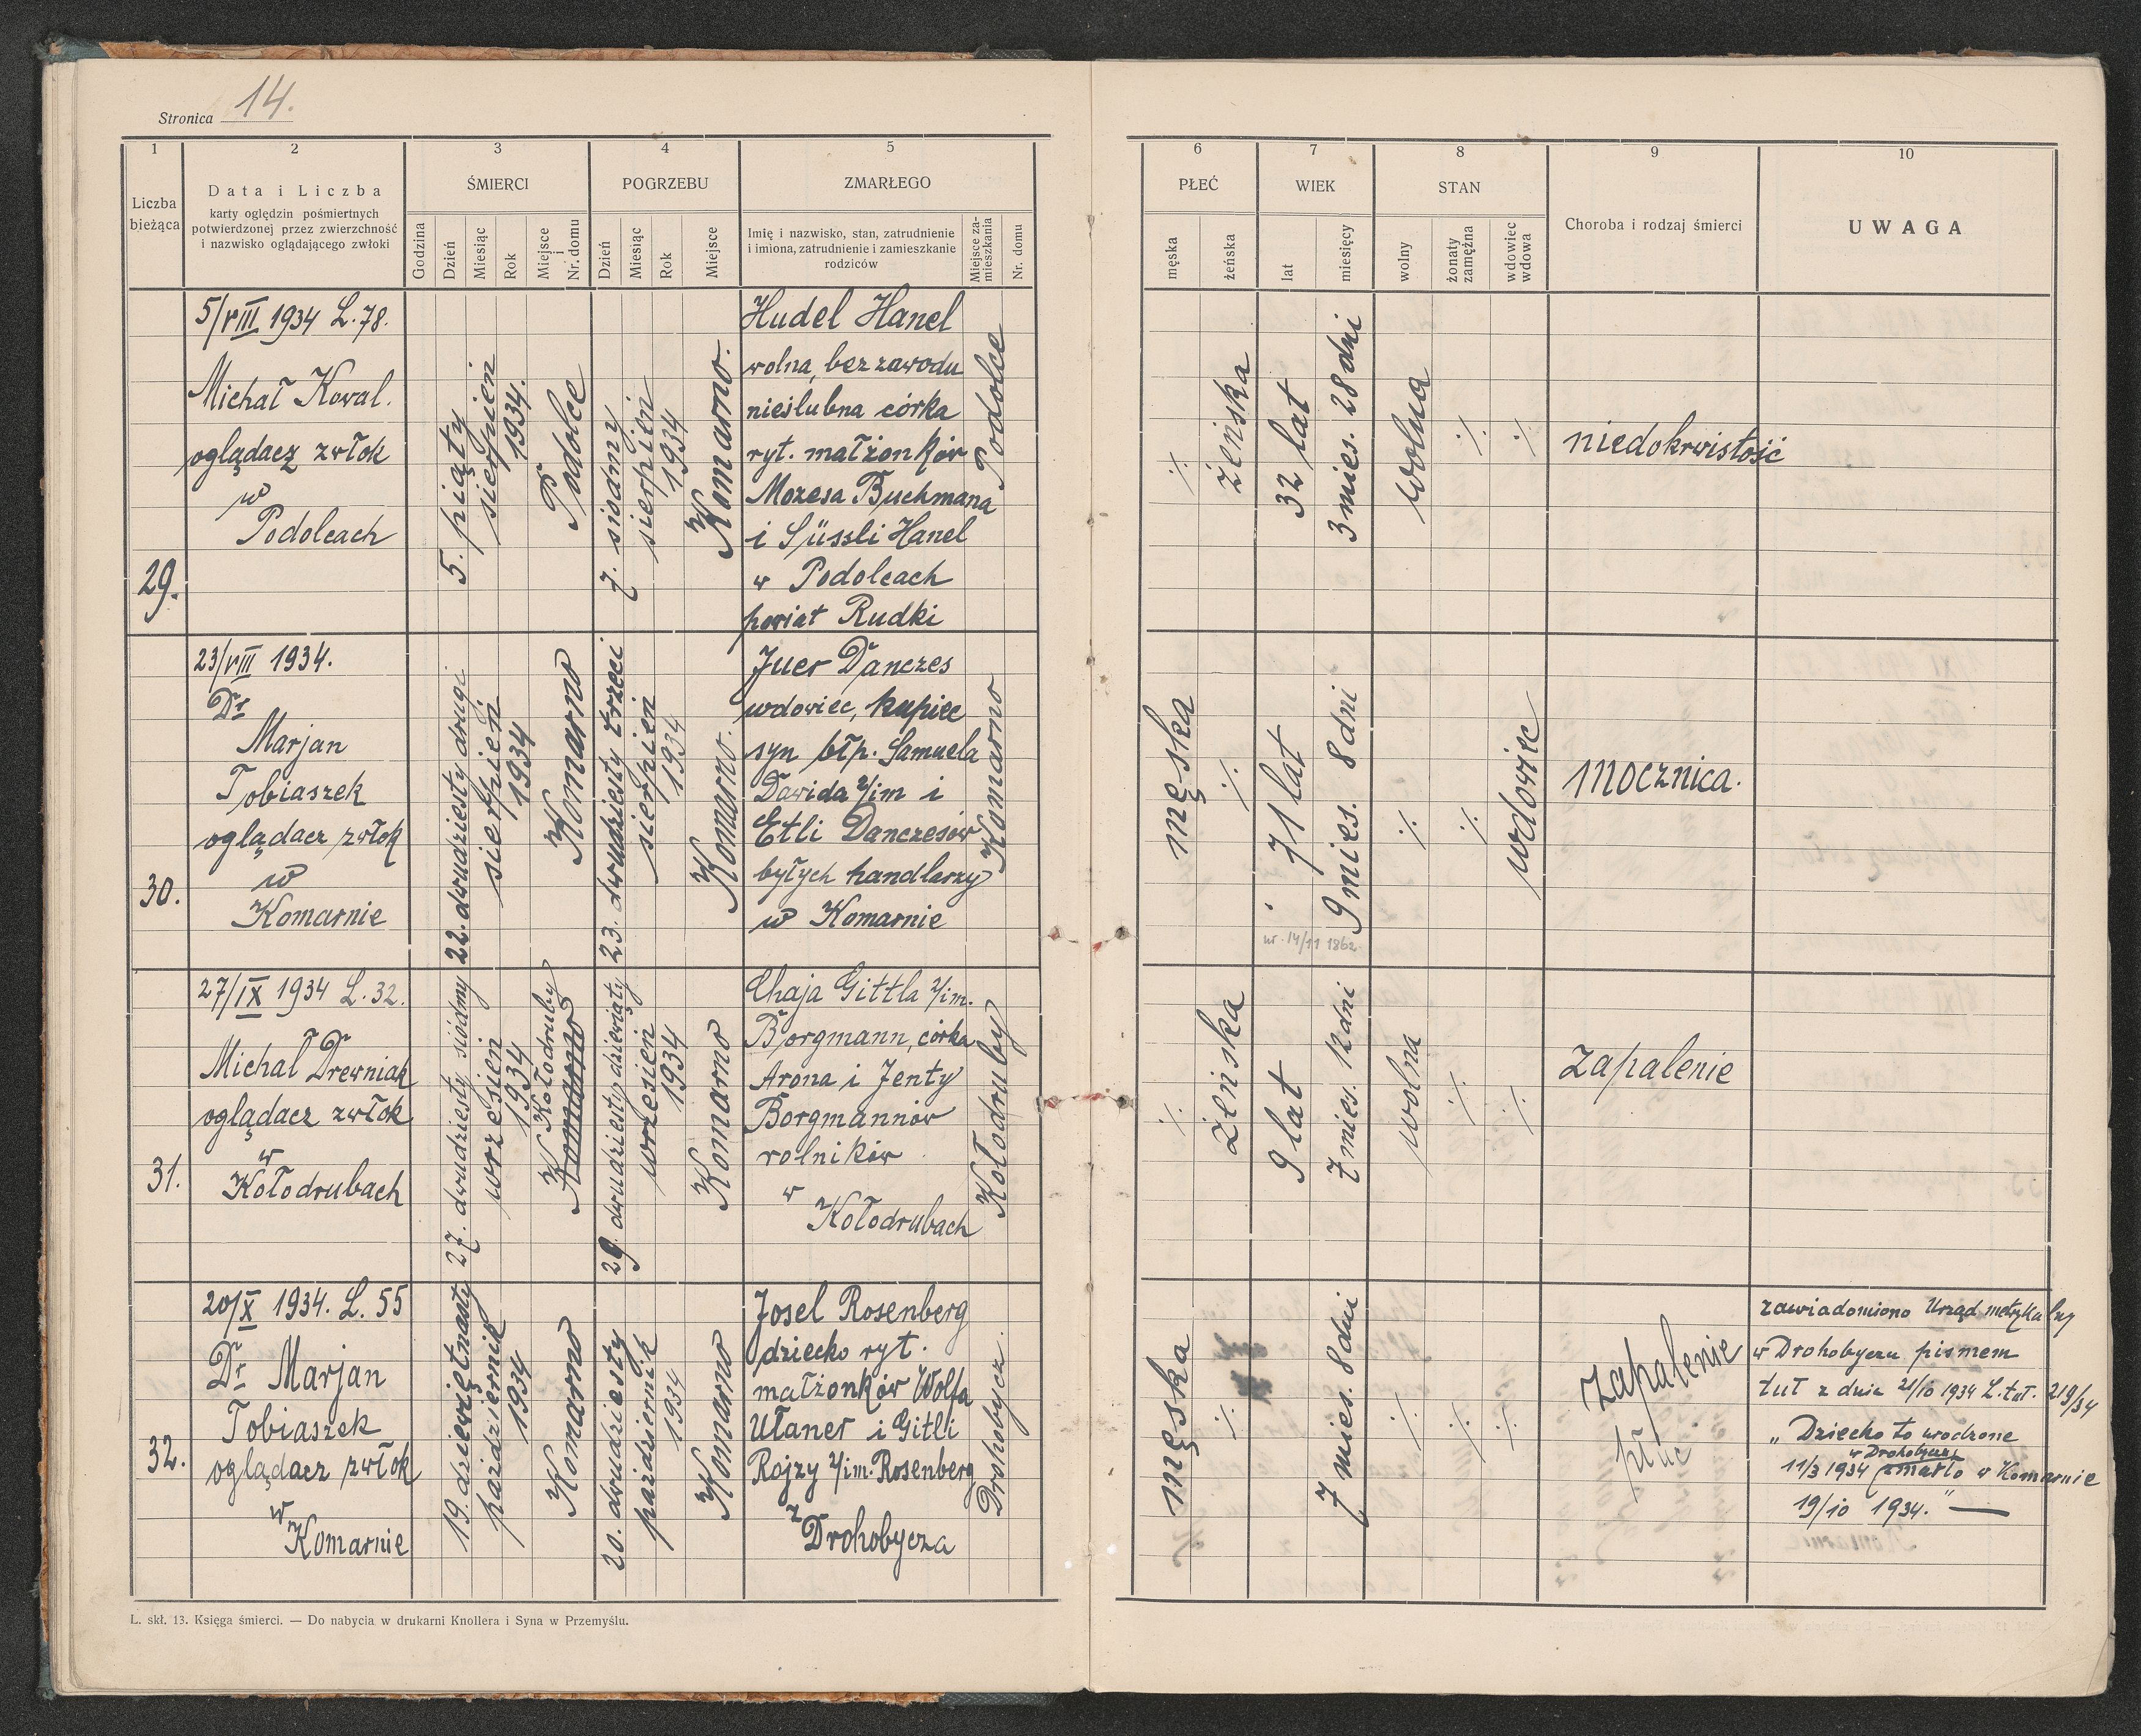 Stronica 14.
1
2
3
4
5
6
7
8
9
10
Liczba
bieżąca
Data i Liczba
karty oględzin pośmiertnych
potwierdzonej przez zwierzchność
i nazwisko oglądającego zwłoki
ŚMIERCI
Godzina
Dzień
Miesiąc
Rok
Miejsce
i
Nr. domu
POGRZEBU
Dzień
Miesiąc
Rok
Miejsce
ZMARŁEGO
Imię i nazwisko, stan, zatrudnienie
i imiona, zatrudnienie i zamieszkanie
rodziców
Miejsce za-
mieszkania
Nr. domu
PŁEĆ
męska
żeńska
WIEK
lat
miesięcy
STAN
wolny
żonaty
zamężna
wdowiec
wdowa
Choroba i rodzaj śmierci
UWAGA
29.
5/VIII 1934 L. 78.
Michał Kowal.
oglądacz zwłok
w
Podolcach
5. piąty
sierpień
1934.
Podolce
7. siódmy
sierpień
1934
Komarno.
Hudel Hanel
wolna, bez zawodu
nieślubna córka
ryt. małżonków
Mozesa Buchmana
i Süssli Hanel
w Podolcach
powiat Rudki
Podolce
./.
żeńska
32 lat
3 mies. 28 dni
wolna
./.
./.
niedokrwistość
30.
23/VIII 1934.
Dr
Marjan
Tobiaszek
oglądacz zwłok
w
Komarnie
22. dwudziesty drugi
sierpień
1934
Komarno
23. dwudziesty trzeci
sierpień
1934
Komarno.
Juer Danczes
wdowiec, kupiec
syn błp. Samuela
Dawida 2/im i
Etli Danczesów
byłych handlarzy
w Komarnie
Komarno
męska
./.
71 lat
9 mies. 8 dni
ur. 14/11 1862
./.
./.
wdowiec
mocznica.
31.
27/IX 1934 L. 32.
Michał Drewniak
oglądacz zwłok
w
Kołodrubach
27. dwudziesty siódmy
wrzesień
1934
Kołodruby
Komarno
29. dwudziesty dziewiąty
wrzesień
1934
Komarno
Chaja Gittla 2/im.
Borgmann, córka
Arona i Jenty
Borgmannów
rolników
w
Kołodrubach
Kołodruby
./.
żeńska
9 lat
7 mies. 12 dni
wolna
./.
./.
zapalenie
32.
20/X 1934. L. 55
Dr Marjan
Tobiaszek
oglądacz zwłok
w
Komarnie
19. dziewiętnasty
październik
1934
Komarno
20. dwudziesty
październik
1934
Komarno
Josel Rosenberg
dziecko ryt.
małżonków Wolfa
Ułaner i Gitli
Rojzy 2/im. Rosenberg
z
Drohobycza
Drohobycz.
męska
./.
7 mies. 8 dni
./.
./.
./.
zapalenie
płuc
zawiadomiono Urząd metrykalny
w Drohobyczu pismem
tut z dnia 21/10 1934 L. tut. 219/34
„Dziecko to urodzone
w Drohobyczu
11/3 1934 zmarło w Komarnie
19/10 1934." —
L. skł. 13. Księga śmierci. — Do nabycia w drukarni Knollera i Syna w Przemyślu.